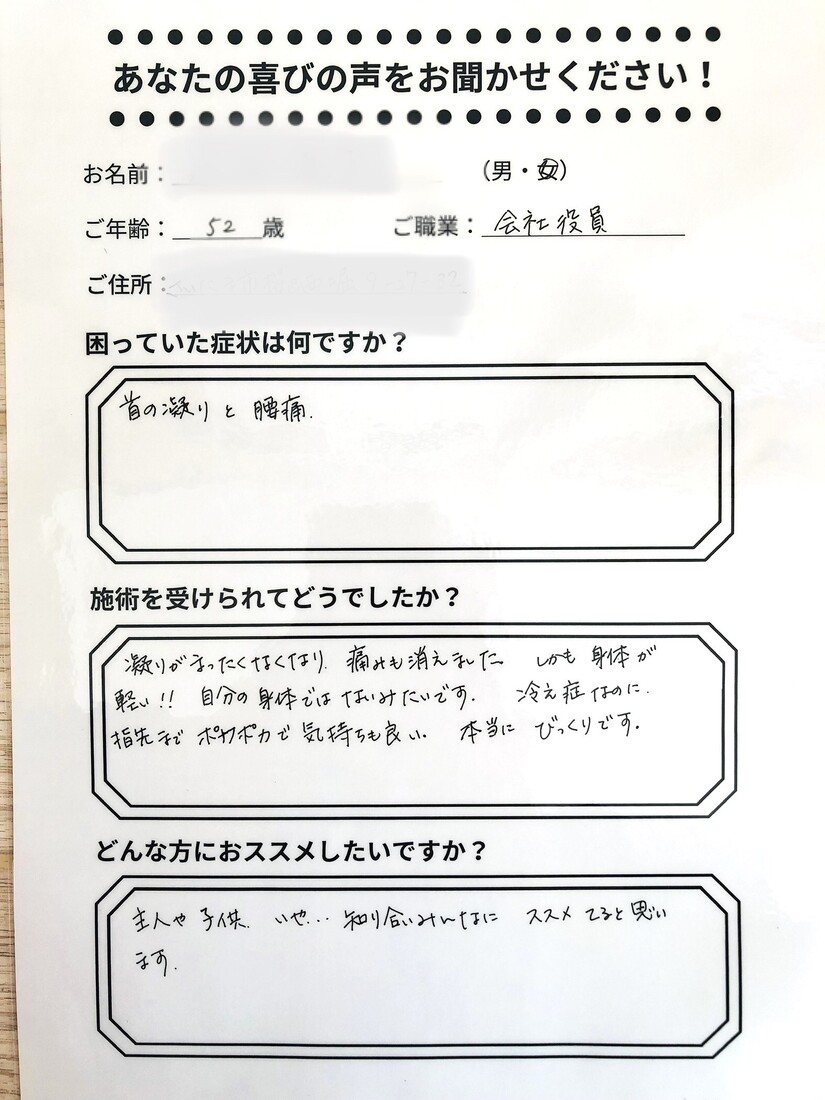 あなたの喜びの声をお聞かせください！
お名前： （男・女）
ご年齢： 52 歳 ご職業： 会社役員
ご住所：
困っていた症状は何ですか？
首の凝りと 腰痛.
施術を受けられてどうでしたか？
凝りがまったくなくなり. 痛みも消えました しかも 身体が
軽い!! 自分の身体では ないみたいです. 冷え症なのに.
指先まで ポカポカで 気持ちも良い. 本当に びっくりです.
どんな方におススメしたいですか？
主人や 子供. いや… 知り合いみんなに ススメ てると思い
ます.